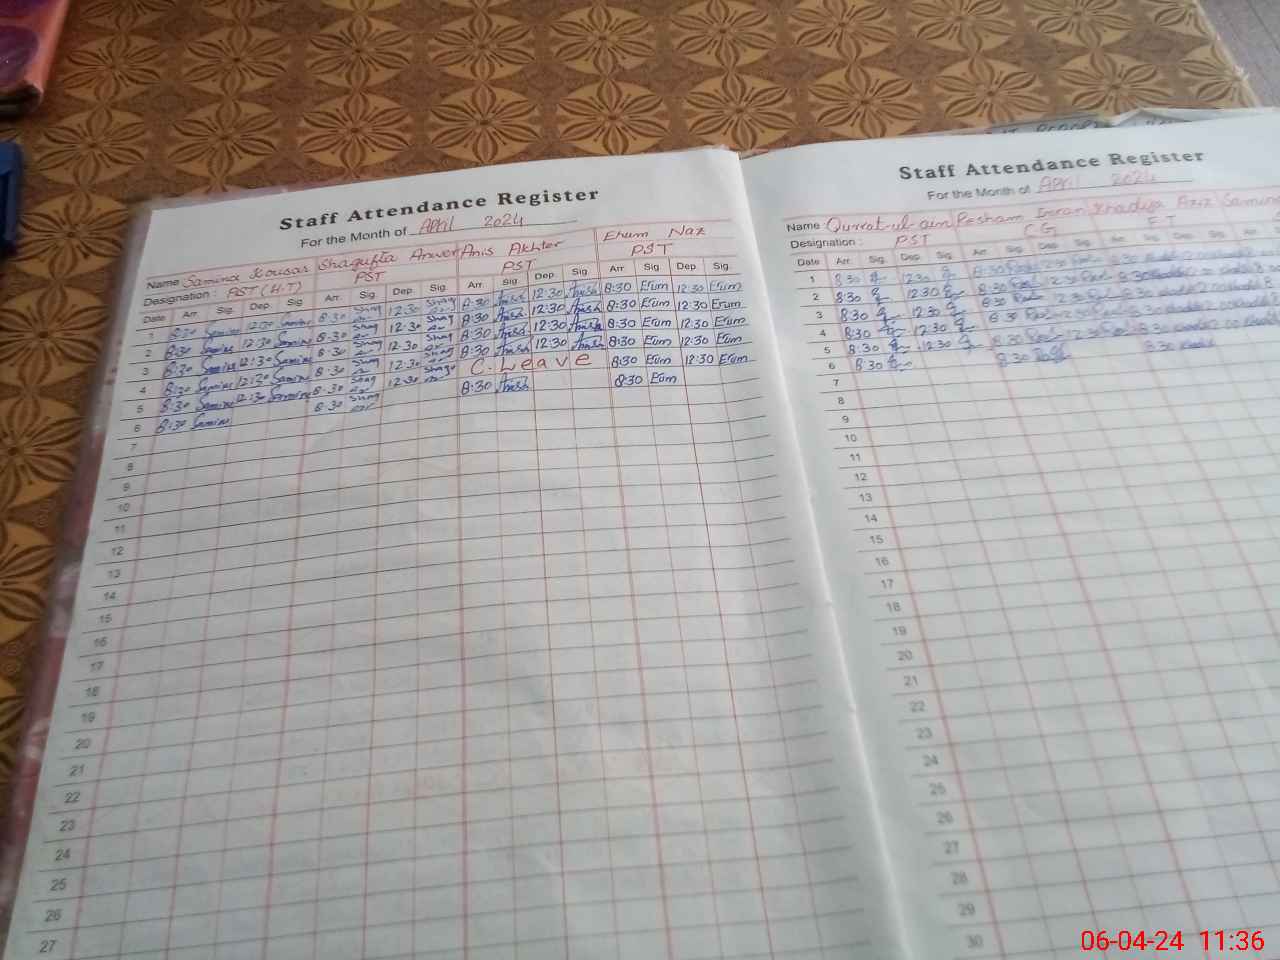 Staff Attendance Register
For the Month of April 2024
Name Samina Kousar Shagufta Anwer Anis Akhter Erum Naz
Designation : PST (H.T) PST PST PST
Date Arr. Sig. Dep. Sig. Arr. Sig. Dep. Sig. Arr. Sig. Dep. Sig. Arr. Sig. Dep. Sig.
1 8:30 Samina 12:30 Samina 8:30 Shag 12:30 Shag 8:30 Anish 12:30 Anish 8:30 Erum 12:30 Erum
2 8:30 Samina 12:30 Samina 8:30 Shag 12:30 Shag 8:30 Anish 12:30 Anish 8:30 Erum 12:30 Erum
3 8:30 Samina 12:30 Samina 8:30 Shag 12:30 Shag 8:30 Anish 12:30 Anish 8:30 Erum 12:30 Erum
4 8:30 Samina 12:30 Samina 8:30 Shag 12:30 Shag 8:30 Anish 12:30 Anish 8:30 Erum 12:30 Erum
5 8:30 Samina 12:30 Samina 8:30 Shag 12:30 Shag C. Leave 8:30 Erum 12:30 Erum
6 8:30 Samina 8:30 Shag 8:30 Anish 8:30 Erum
7
8
9
10
11
12
13
14
15
16
17
18
19
20
21
22
23
24
25
26
27
Staff Attendance Register
For the Month of April 2024
Name : Qurrat-ul-ain Resham Imran Khadija Aziz Samina
Designation : PST C G F T
Date Arr. Sig. Dep. Sig. Arr. Sig. Dep. Sig. Arr. Sig. Dep. Sig. Arr.
1 8:30 12:30 8:30
2 8:30 12:30 8:30
3 8:30 12:30 8:30
4 8:30 12:30
5 8:30 12:30 8:30
6 8:30 8:30 8:30
7
8
9
10
11
12
13
14
15
16
17
18
19
20
21
22
23
24
25
26
27
28
29
30
06-04-24 11:36